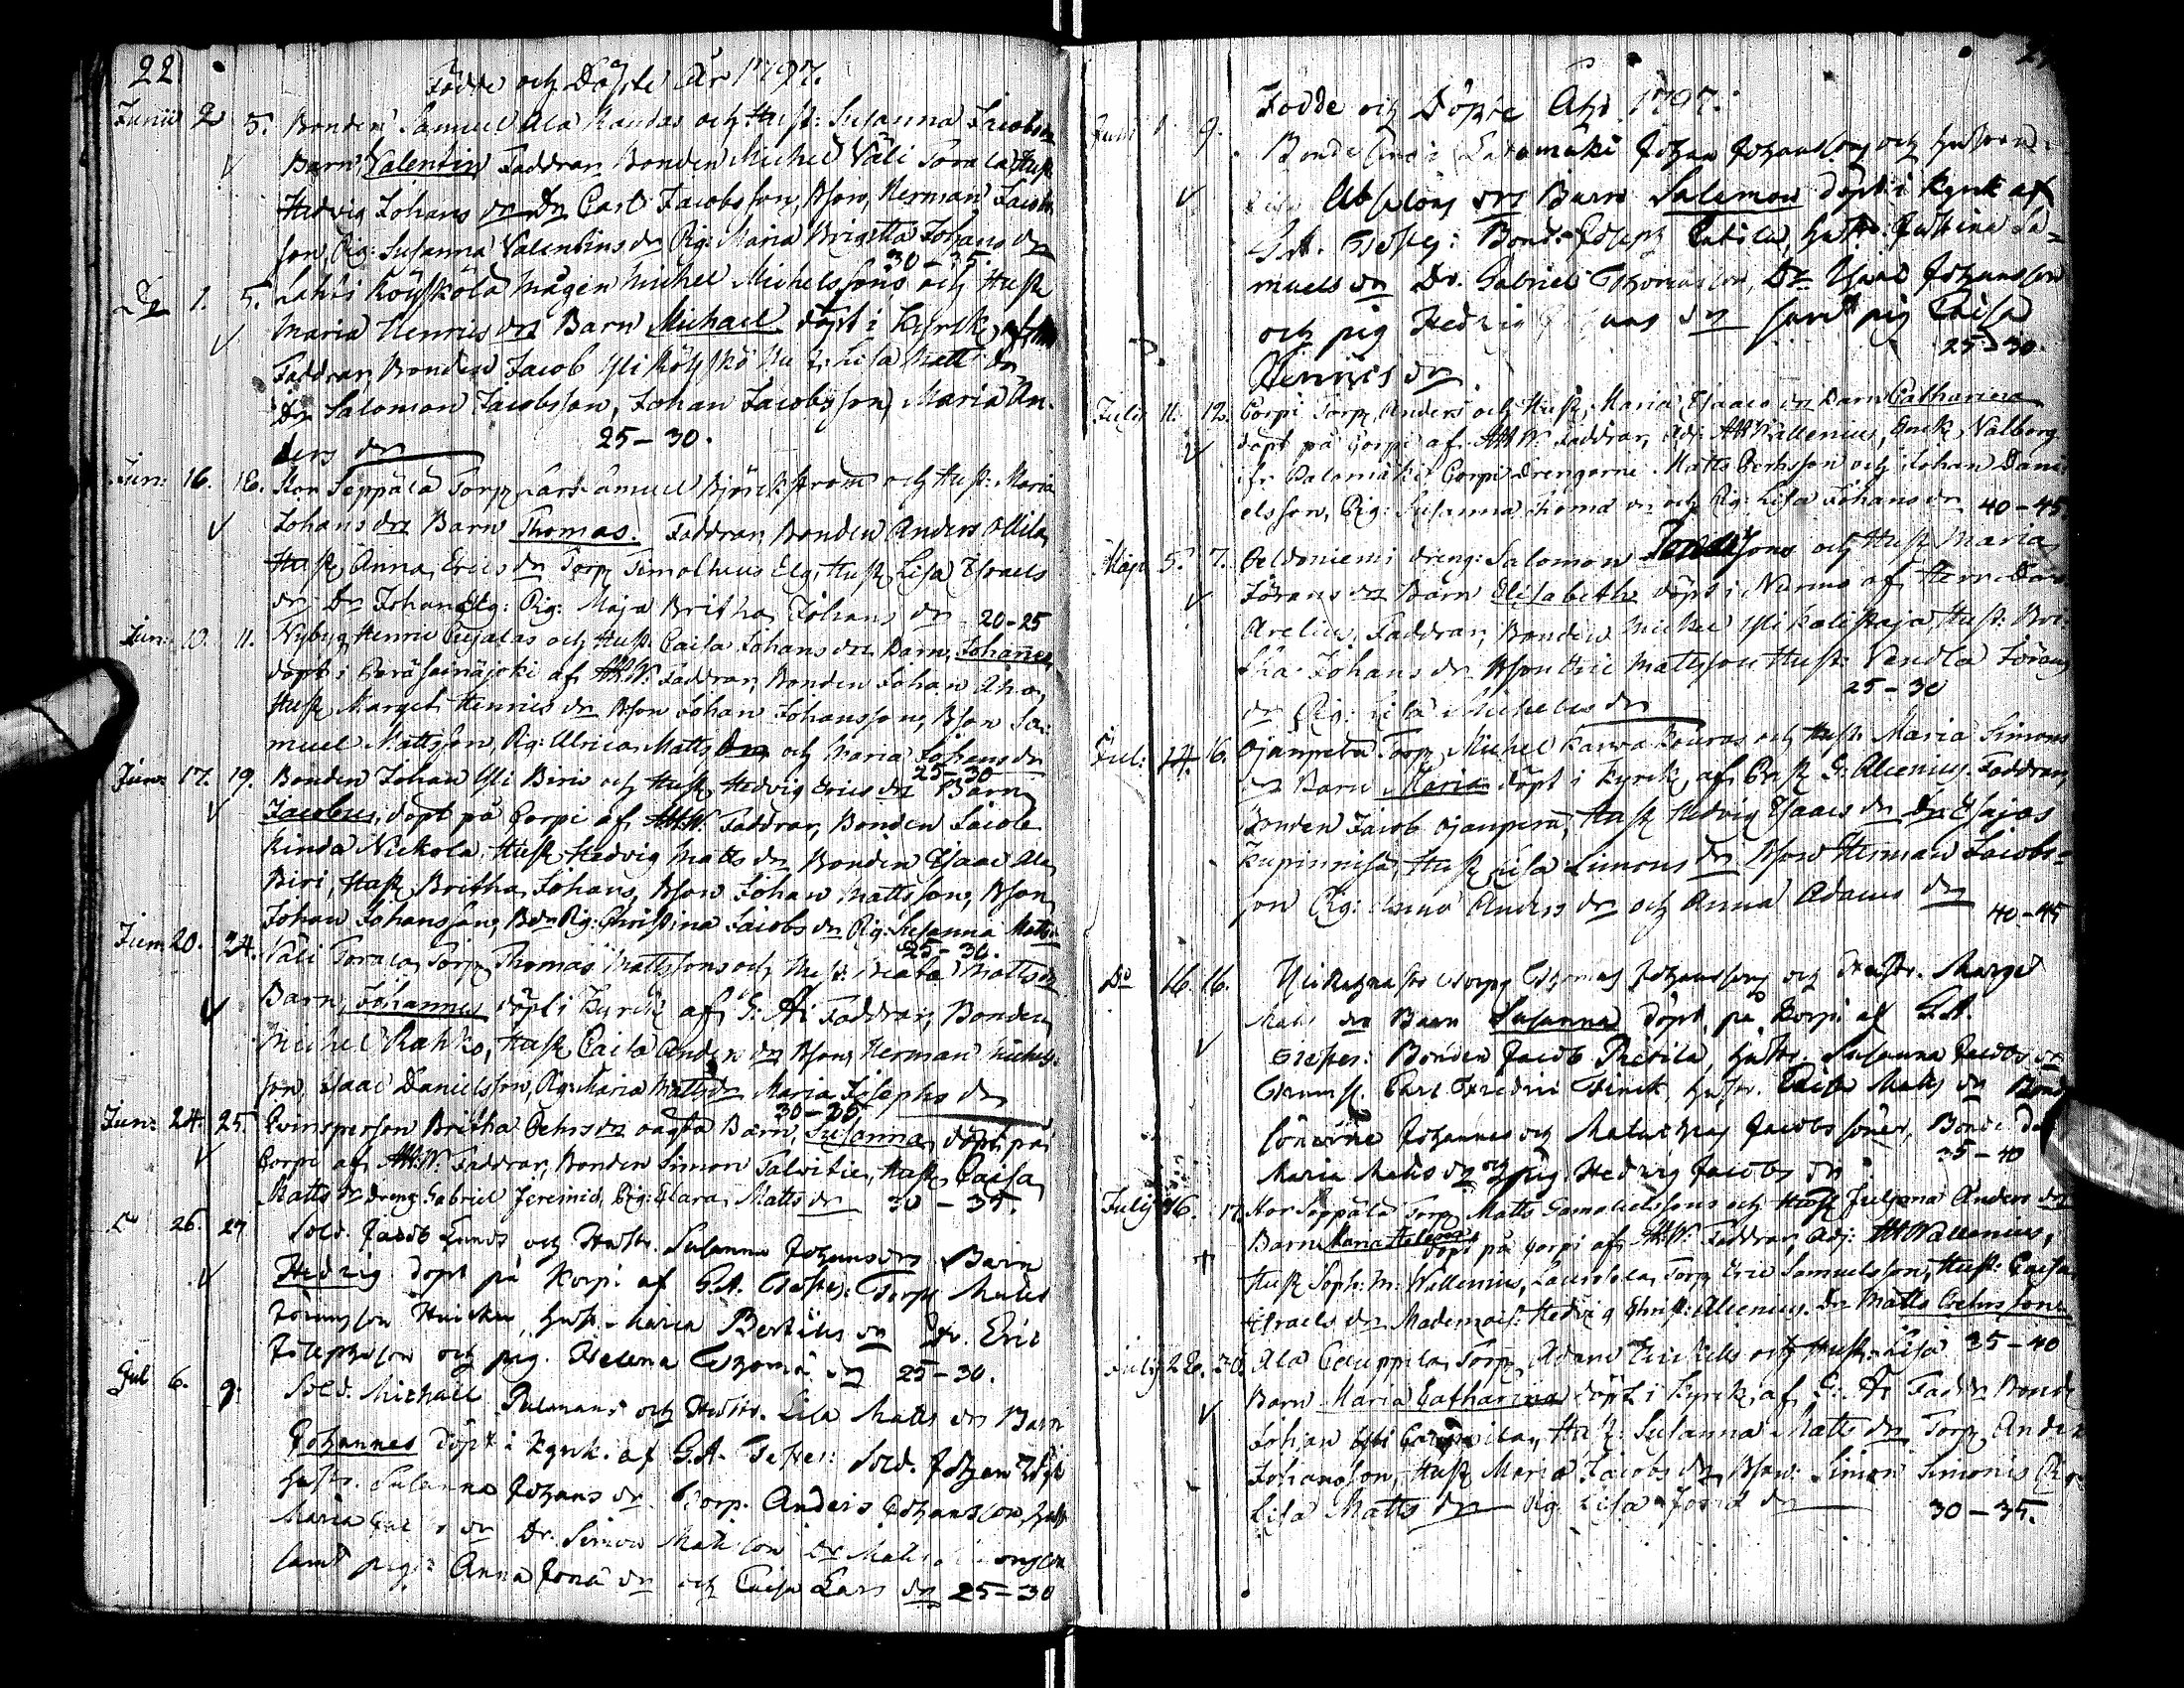 22
Födde och Döpte År 1797.
Junii 2 5. Bonden Samuel Ala Kandas och Hust: Susanna Jacobs dr
Barn Valentin Faddrar Bonden Michel Väli Torala Hust
Hedvig Johans dr Dr Carl Jacobsson, Bson, Herman Jacobs
son, Pig: Susanna Valentins dr Pig: Maria Brigitta Johans dr
30-35.
Do 1. 5. Lahti Köyskölä Mågen Michel Michelssons och Hust
Maria Henrics dr Barn Michael döpt i Kyrck. af
Faddrar, Bonden Jacob Yli Köyskö Hu t: Lisa Matts dr
Dr Salomon Jacobsson, Johan Jacobsson, Maria An-
ders dr 25-30.
Jun: 16. 18. Stor Seppälä Torp Lars Samuel Björckstrom och Hust: Maria
Johans dr Barn Thomas. Faddrar, Bonden Anders Ollila,
Hust Anna Erics dr Torp Timotheus Elg, Hust Lisa Israels
dr Dr Johan Elg: Pig: Maja Britha Johans dr 20-25
Jun: 10. 11. Nybyg Henric och Hust: Caisa Johans dr Barn, Johannes
döpt i Peräseinäjoki af AHW. Faddrar, Bonden Johan Aho,
Hust Marget Henrics dr Bson Johan Johansson, Bson Sa-
muel Mattsson, Pig: Ulrica Matts dr och Maria Johans dr
25-30
Jun: 17. 19. Bonden Johan Yli Biri och Hust Hedvig Erics dr Barn
Jacobus, döpt på Corpi af AHW. Faddrar, Bonden Jacob
Rinda Nickola, Hust Hedvig Matts dr, Bonden Isaac Ala
Biri, Hust Britha Johans, Bson Johan Mattsson, Bson
Johan Johansson, Pig: Christina Jacobs dr Pig: Susanna Matts
25-30.
Jun: 20. 24. Väli Torala Torp Thomas Mattssons och Hust: Beata Matts dr
Barn Johannes döpt i Kyrck af G: A: Faddrar, Bonden
Michel Rahko, Hust Caisa Anders dr Bson, Herman Michels-
son, Isaac Danielsson, Pig: Maria Matts dr Maria Josephs dr
30-35
Jun: 24. 25. Qvinsperson Britha Pehrs dr oägta Barn, Susanna, döpt på
Corpi af AHW. Faddrar, Bonden Simon Talvitie, Hust Caisa
Matts dr dreng Gabriel Jeremiæ, Pig: Clara Matts dr 30-35.
Do 26. 27 Sold. Jacob Lunds och Hustr. Susanna Johans dr Barn
Hedvig döpt på Korpi af G.A. Testes: Torp Matts
Göransson Hustr. Maria Bertils dr Dr. Eric
Josephsson och pig. Helena Thomæ dr 25-30.
Jul 6. 9. Sold. Michael Palmans och Hustr. Lisa Matts dr Barn
Johannes döpt i Kyrk. af G.A. Testes: Sold. Johan
Hustr. Susanna Johans dr. Torp. Anders Johansson, Hustr
Maria dr Dr. Simon Mattsson Dr Matts
samt pig: Anna Jonæ dr och Caisa Lars dr 25-30
Födde och Döpte Åhr 1797.
Julii 1. 9. Bondesons i Laromäki Johan Johanssons och hustrun
Lisa Absalons dr Barn Salomon döpt i Kyrk af
G.A. Testes: Bond: Joseph hustr: Justina Sa-
muels dr Dr. Gabriel Thomasson, Dr Isaac Johansson
och pig Hedvig dr samt pig Caisa
Henrics dr 25-30.
Julii 11. 12. Corpi Torp, Anders och Hust, Maria Isaacs dr Barn Catharina
döpt på Corpi af AHW. Faddrar, Adj: AHWallenius, Enck. Valborg
ifr. Palomäki Corpi Drengarne Matts Pehrsson och Johan Dani-
elsson, Pig: Susanna Thomæ dr och Pig: Lisa Johans dr 40-45.
Maji 5. 7. Peldoniemi dreng: Salomon och Hust Maria
Görans dr Barn Elisabeth döpt i Nurmo af Herr
Arelius, Faddrar, Bonden Michel Yli Kalistaja, Hust: Bri-
tha Johans dr Bson Eric Mattsson Hust: Vendla Görans
dr Pig: Lisa Michels dr 25-30
Jul: 14. 16. Ojanperä Torp, Michel Karva Kouras och Hust: Maria Simons
dr Barn Maria döpt i Kyrck, af Past G: Alcenius. Faddrar,
Bonden Jacob Ojanperä, Hust Hedvig Isaacs dr Dr Esajas
Hust Lisa Simons dr Bson Herman Jacobs-
son Pig: Anna Anders dr och Anna Adams dr
40-45
Do 16. 16. Torp Thomas Johanssons och Hustr. Marget
Matts dr Barn Susanna döpt på Korpi af G.A.
Testes: Bonden Jacob Hustr. Susanna Jacobs dr
Carl Fredric Finck, Hustr. Caisa Matts dr Bond
sönerne Johannes och Malachias Jacobs söner, Bonde
Maria Matts dr och pig. Hedvig Jacobs dr 35-40
Julii 16. 17. Stor Seppälä Torp Matts Gamalielssons och Hust Juliana Anders dr
Barn Maria Helena döpt på Corpi af AHW. Faddrar, Adj: AHWallenius,
Hust Soph: M: Wallenius, Torp Eric Samuelsson, Hust: Caisa
Israels dr Mademois: Hedvig Christ: Alcenius. Dr Matts Pehrsson
35-40
Julii 28. 30. Ala Cauppila Torp Adam och Hust: Lisa
Barn Maria Catharina döpt i Kyrck, af G: A: Faddr Bonde
Johan Yli Cauppila, Hust: Susanna Matts dr Torp Anders
Johansson, Hust Maria Jacobs dr, Bson: Simon Simonis
Lisa Matts dr Pig Lisa dr
30-35.